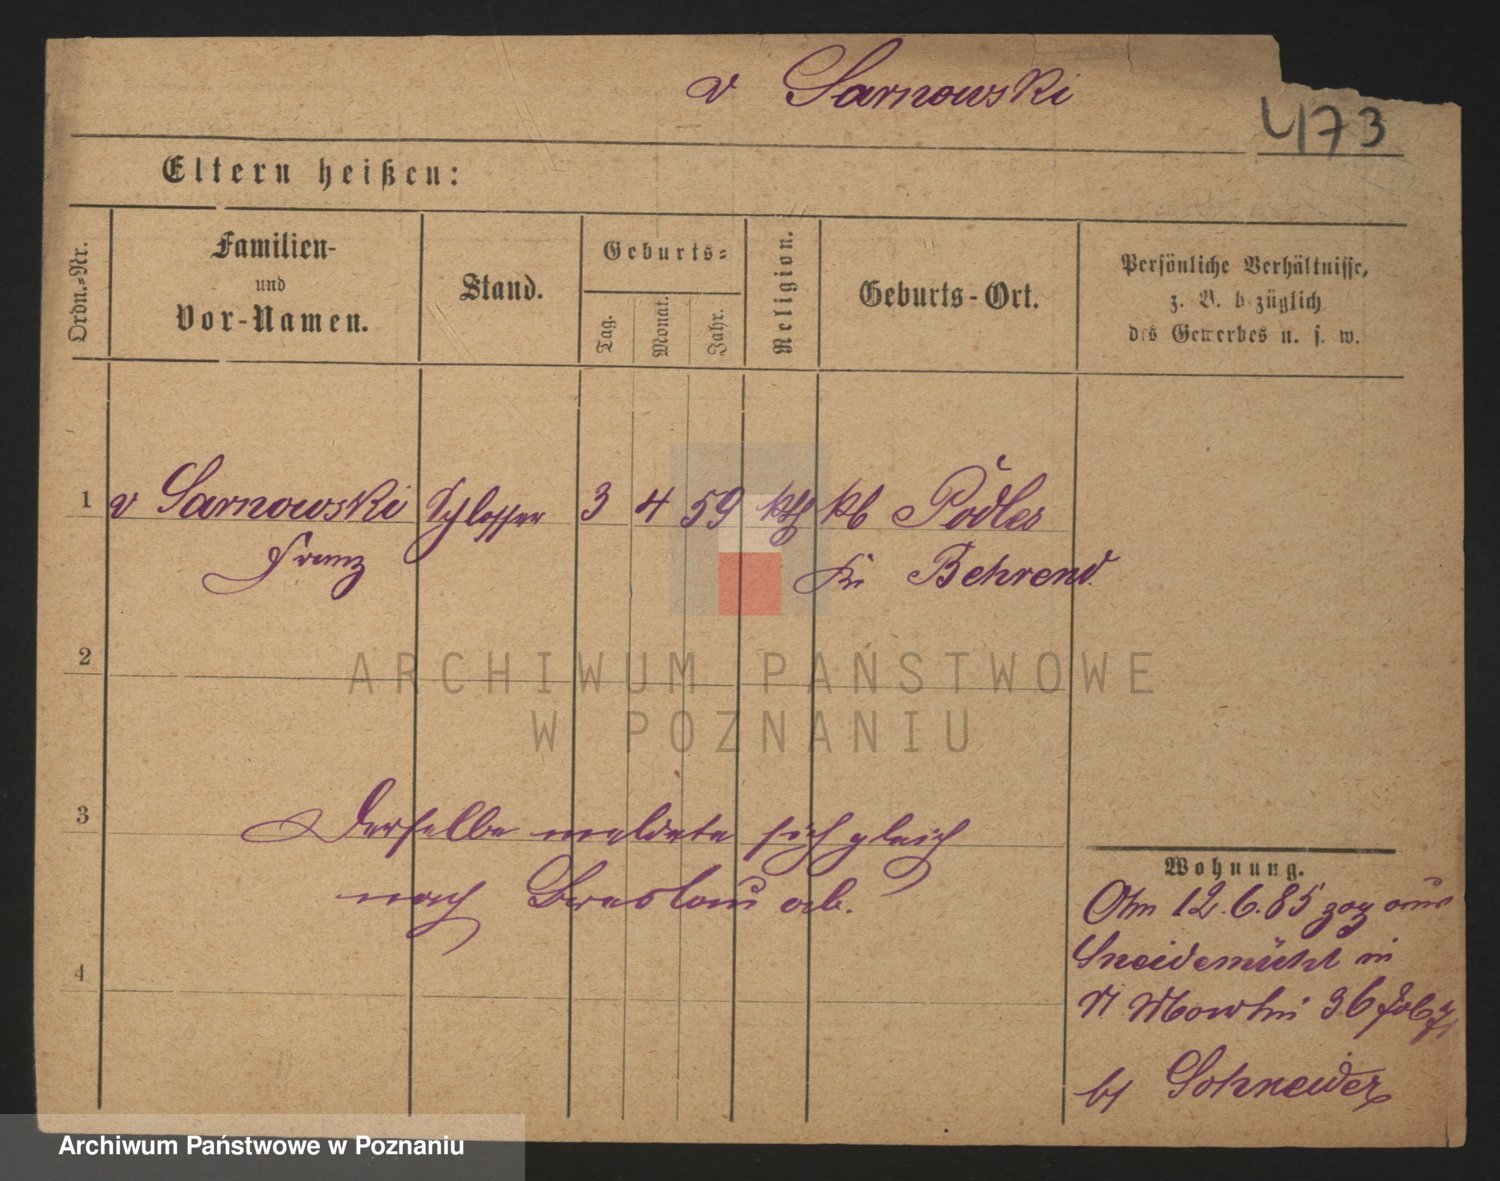 v Sarnowski
473
Eltern heißen:
Ordn.-Nr.
Familien-
und
Vor-Namen.
Stand.
Geburts-
Tag.
Monat.
Jahr.
Religion.
Geburts-Ort.
Persönliche Verhältnisse,
z. B. bezüglich
des Gewerbes u. s. w.
1 v Sarnowski Schlosser 3 4 59 kth Podles
Franz Kr Behrend
2
ARCHIWUM PAŃSTWOWE
W POZNANIU
3
Derselbe meldete sich gleich
nach Breslau ab.
4
Wohnung.
Am 12.6.85 zog aus
Sneidemühl in
St Martin 36
bei Schneider
Archiwum Państwowe w Poznaniu